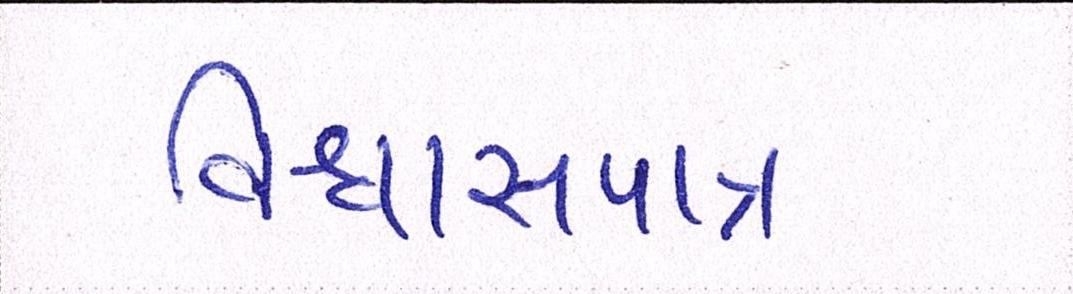 વિશ્વાસપાત્ર